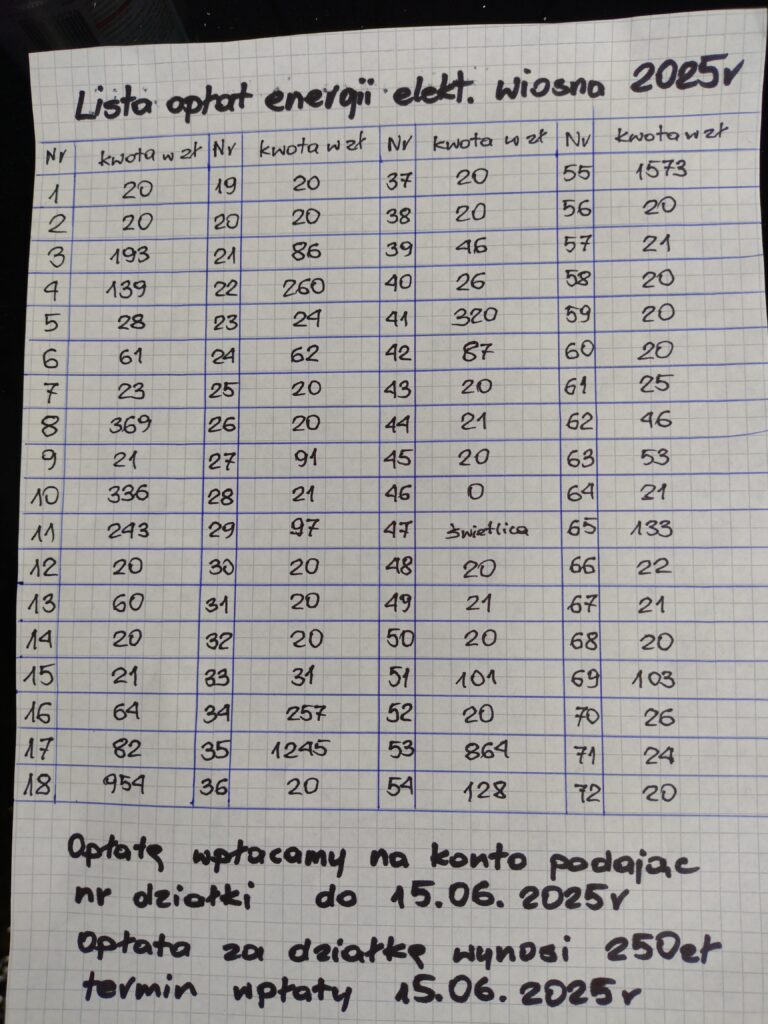 Lista opłat energii elekt. wiosna 2025r
Nr kwota w zł Nr kwota w zł Nr kwota w zł Nr kwota w zł
1 20 19 20 37 20 55 1573
2 20 20 20 38 20 56 20
3 193 21 86 39 46 57 21
4 139 22 260 40 26 58 20
5 28 23 24 41 320 59 20
6 61 24 62 42 87 60 20
7 23 25 20 43 20 61 25
8 369 26 20 44 21 62 46
9 21 27 91 45 20 63 53
10 336 28 21 46 0 64 21
11 243 29 97 47 świetlica 65 133
12 20 30 20 48 20 66 22
13 60 31 20 49 21 67 21
14 20 32 20 50 20 68 20
15 21 33 31 51 101 69 103
16 64 34 257 52 20 70 26
17 82 35 1245 53 864 71 24
18 954 36 20 54 128 72 20
Opłatę wpłacamy na konto podając
nr działki do 15.06.2025r
Opłata za działkę wynosi 250zł
termin wpłaty 15.06.2025r